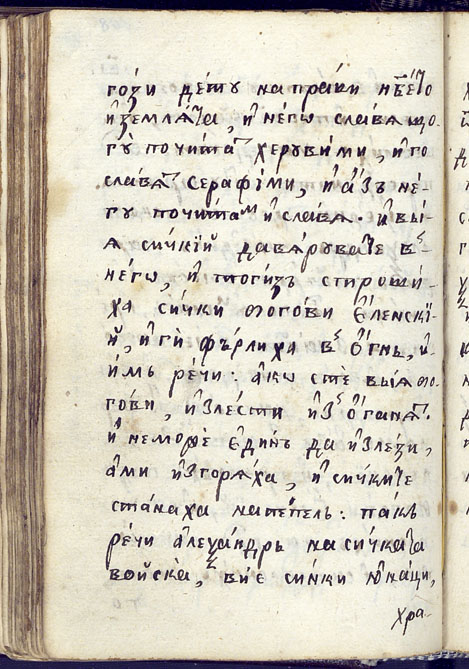 гоѕи дету направи нб҃ето
и҆ землѧта, и҆ него славѧщо
гу почитаⷮ херувими, и҆ го
славѧⷮ серафіми, и҆ а҆зъ не
гу почитаⷨ и҆ славѧ. и҆ вы
ѧ сичкій давѧрувате въ
него, и҆ тогизъ строши
ха сички ѳогови є҆ленскі
и҆, и҆ ги фърлиха въ ѻ҆гнь, и҆
имъ речи: ако сте выѧ ѳо
гови, и҆злести и҆зъ ѻ҆ганѧⷮ.
и҆ неможе є҆динъ да и҆злези,
ами и҆згорѧха, и҆ сичките
станаха напепель: пакъ
речи алеѯандръ на сичката
войска, вїе сички ю҆наци,
хра-